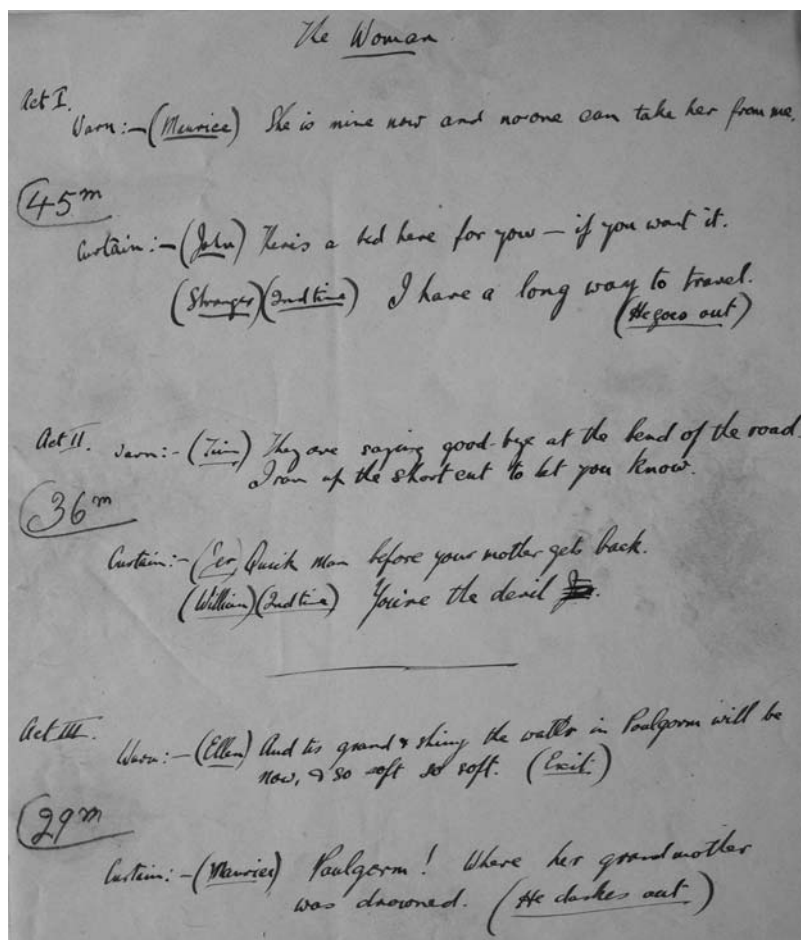 The Woman
Act I.
Warn:- (Maurice) She is mine now and no one can take her from me.
45m
Curtain:- (John) There's a bed here for you — if you want it.
(Stranger) (2nd time) I have a long way to travel.
(He goes out)
Act II. Warn:- (Tim) They are saying good-bye at the bend of the road.
I ran up the short cut to let you know.
36m
Curtain:- (Jer) Quick man before your mother gets back.
(William) (2nd time) You're the devil
Act III.
Warn:- (Ellen) And tis grand & shiny the water in Poulgorm will be
now, & so soft so soft. (Exit)
29m
Curtain:- (Maurice) Poulgorm! Where her grandmother
was drowned. (He dashes out)